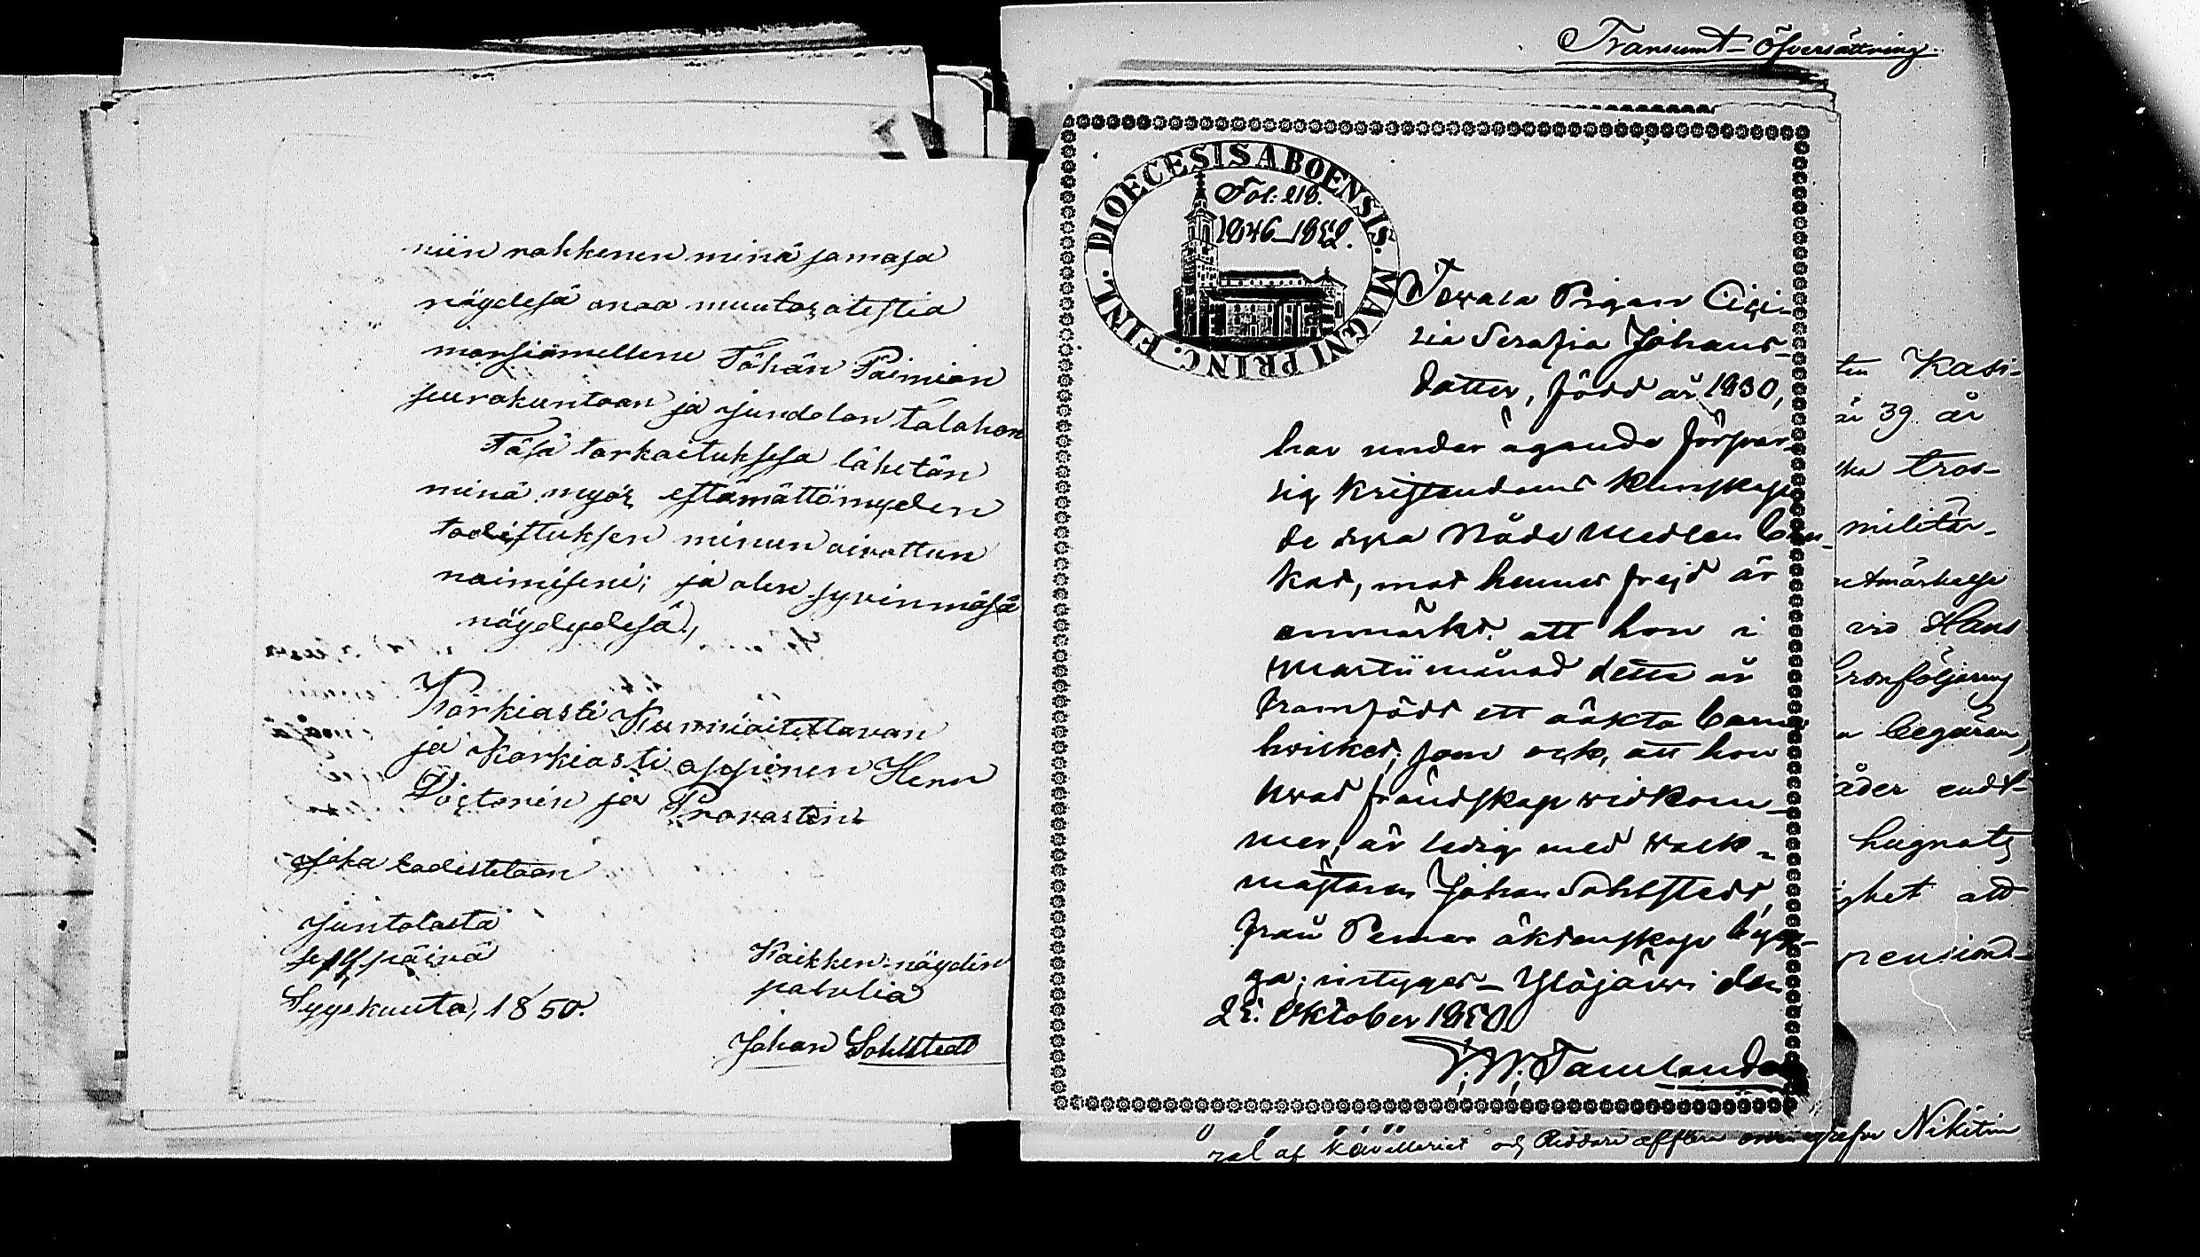 niin rohkenen minä samasa
näydesä anoa muutosatestia
morsiamelleni Tähän Paimion
seurakuntaan ja Jundolan talohon
Täsä tarkoituksesa lähetän
minä myös estämättömyden
todistuksen minun aivottun
naimiseni; ja olen syvinmäsä
näydydesä,
Korkiasti Kunnioitettavan
ja Korkiasti oppinen Herr
Tohtorin ja Provastin
Joka todistetaan
Juntolasta
päivä
Syyskuuta, 1850.
Kaikken-näydin
palvelia
Johan Sohlstedt
Transumt-Öfversättning.
DIOECESIS ABOENSIS. MAGNI PRINC. FINL.
Fol: 218.
1846-1852.
Pigan Ceci-
lia Serafia Johans-
dotter, född år 1830,
har under ägande försvar-
lig Kristendoms Kunskap
de dyra Nåde Medlen bru-
kat, mot hennes frejd är
anmärkt, att hon i
Martii månad detta år
framfödt ett oäkta barn
hvilket, som ock, att hon
hvad frändskap widkom-
mer, är ledig med
mästaren Johan Sohlstedt,
från Pemar äktenskap byg-
ga; intygar - Ylöjärvi den
25. Oktober 1850
ten Kasi-
är 39 år
ska tros-
militär-
utmärkelse
vid Hans
tronföljaren
begäran,
åder endt-
hugnats
ghet att
pension-
ral af Kavalleriet och Riddare Nikitin